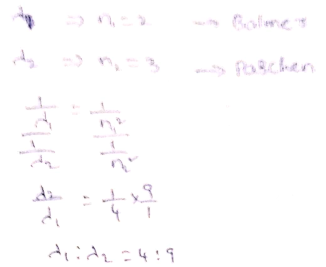 λ₁ ⇒ n₁ = 2 → Balmer
λ₂ ⇒ n₂ = 3 → Paschen
(1/λ₁)/(1/λ₂) = (1/n₁²)/(1/n₂²)
λ₂/λ₁ = 1/4 × 9/1
λ₁ : λ₂ = 4 : 9